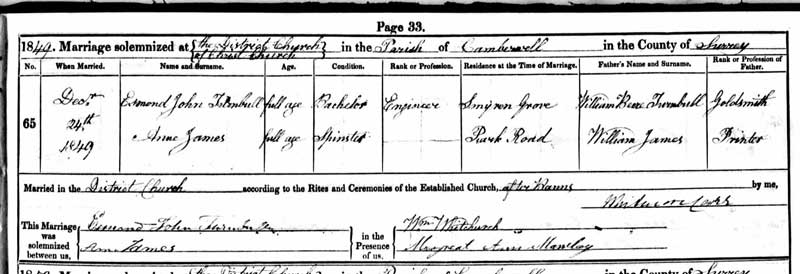 Page 33.
1849. Marriage solemnized at the District Church in the Parish of Camberwell in the County of Surrey
of Christ Church
No. When Married. Name and Surname. Age. Condition. Rank or Profession. Residence at the Time of Marriage. Father's Name and Surname. Rank or Profession of Father.
65 Decr. 24th 1849 Esmond John Turnbull full age Bachelor Engineer Grove William Turnbull Goldsmith
Anne James full age Spinster Park Road William James Printer
Married in the District Church according to the Rites and Ceremonies of the Established Church, after Banns by me,
This Marriage was solemnized between us, Esmond John Turnbull in the Presence of us. Wm Whitchurch
Anne James Margreat Ann
in the Parish of Camberwell in the County of Surrey